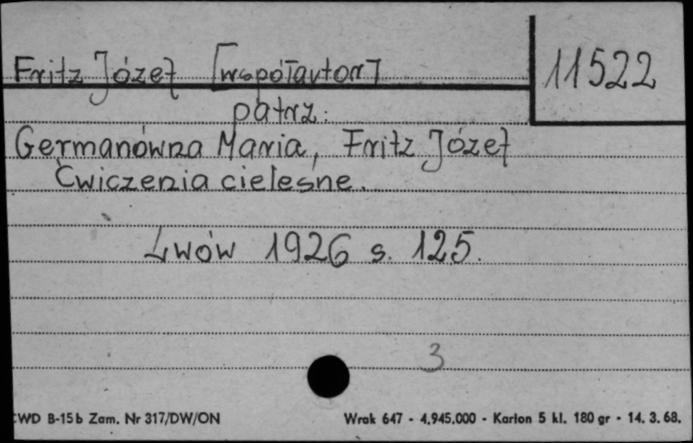 Fritz Józef [współautor]
11522
patrz:
Germanówna Maria, Fritz Józef
Ćwiczenia cielesne.
Lwów 1926 s. 125.
3
CWD B-15b Zam. Nr 317/DW/ON
Wrak 647 - 4.945.000 - Karton 5 kl. 180 gr - 14. 3. 68.